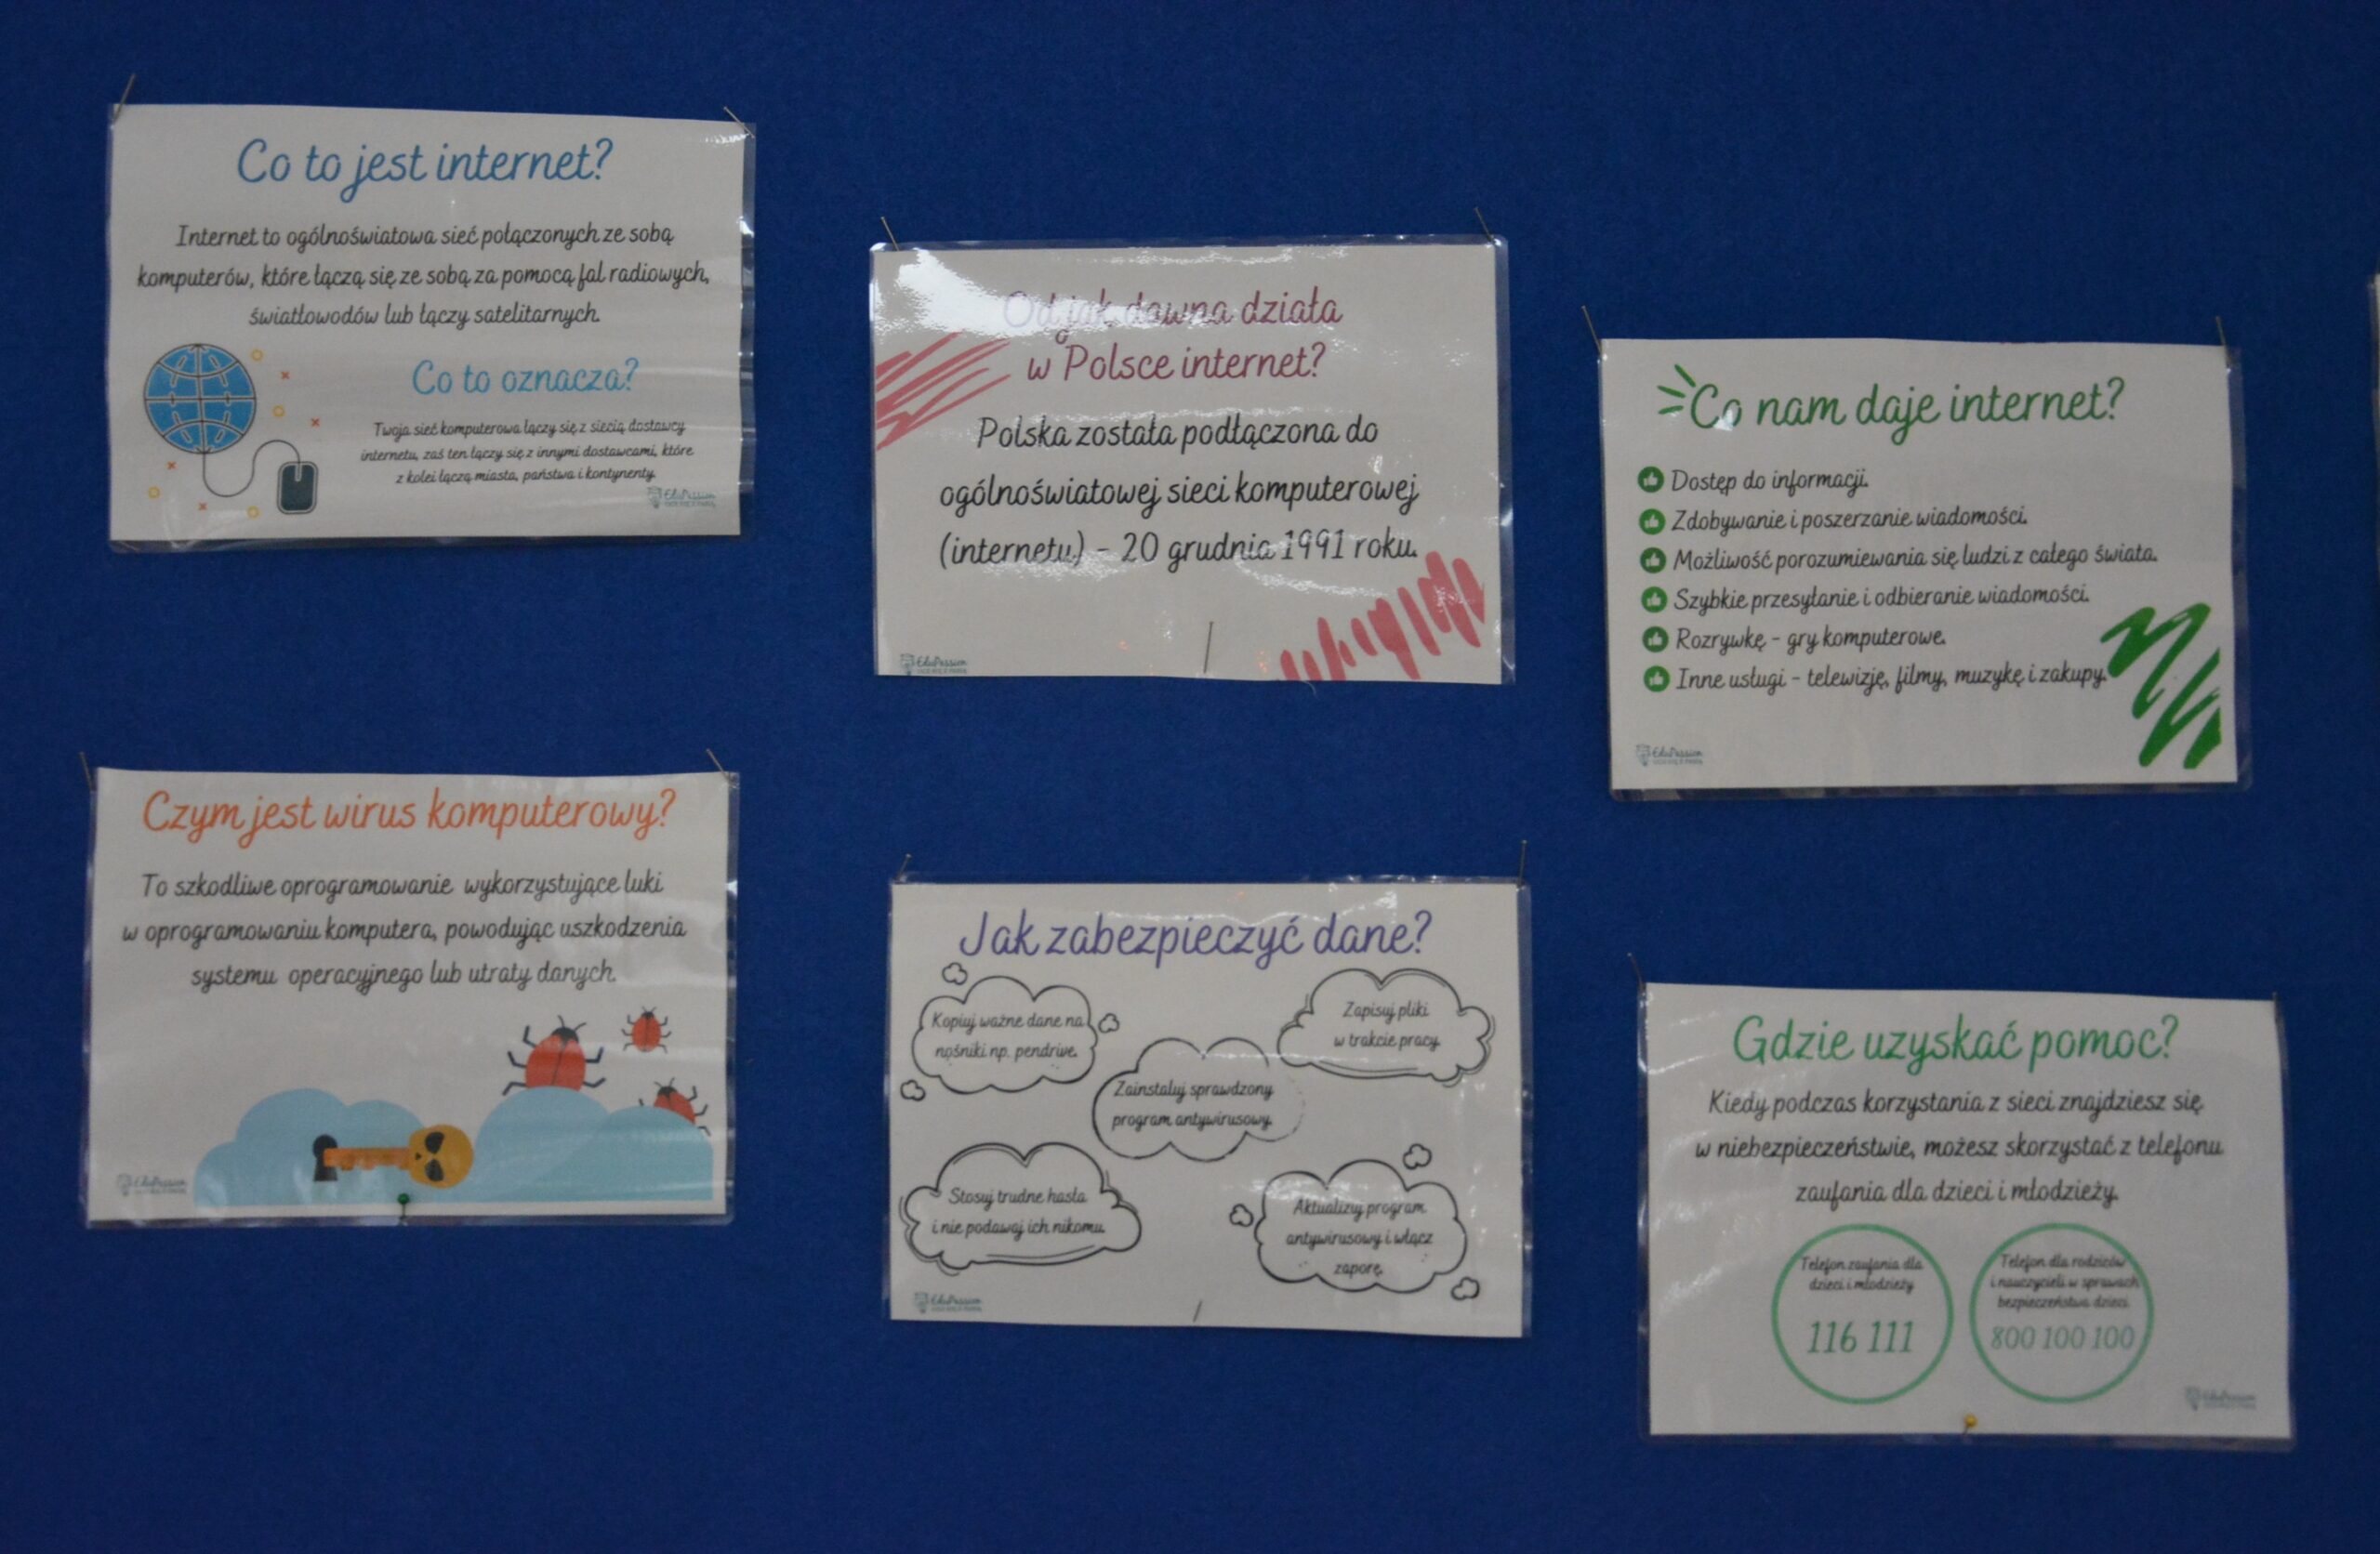 Co to jest internet?
Internet to ogólnoświatowa sieć połączonych ze sobą
komputerów, które łączą się ze sobą za pomocą fal radiowych,
światłowodów lub łączy satelitarnych.
Co to oznacza?
Twoja sieć komputerowa łączy się z siecią dostawcy
internetu, zaś ten łączy się z innymi dostawcami, które
z kolei łączą miasta, państwa i kontynenty.
EduPassion
Od jak dawna działa
w Polsce internet?
Polska została podłączona do
ogólnoświatowej sieci komputerowej
(internetu) - 20 grudnia 1991 roku.
EduPassion
Co nam daje internet?
Dostęp do informacji.
Zdobywanie i poszerzanie wiadomości.
Możliwość porozumiewania się ludzi z całego świata.
Szybkie przesyłanie i odbieranie wiadomości.
Rozrywkę - gry komputerowe.
Inne usługi - telewizję, filmy, muzykę i zakupy.
EduPassion
Czym jest wirus komputerowy?
To szkodliwe oprogramowanie wykorzystujące luki
w oprogramowaniu komputera, powodując uszkodzenia
systemu operacyjnego lub utraty danych.
EduPassion
Jak zabezpieczyć dane?
Kopiuj ważne dane na
nośniki np. pendrive.
Zapisuj pliki
w trakcie pracy.
Zainstaluj sprawdzony
program antywirusowy.
Stosuj trudne hasła
i nie podawaj ich nikomu.
Aktualizuj program
antywirusowy i włącz
zaporę.
EduPassion
Gdzie uzyskać pomoc?
Kiedy podczas korzystania z sieci znajdziesz się
w niebezpieczeństwie, możesz skorzystać z telefonu
zaufania dla dzieci i młodzieży.
Telefon zaufania dla
dzieci i młodzieży
116 111
Telefon dla rodziców
i nauczycieli w sprawach
bezpieczeństwa dzieci
800 100 100
EduPassion